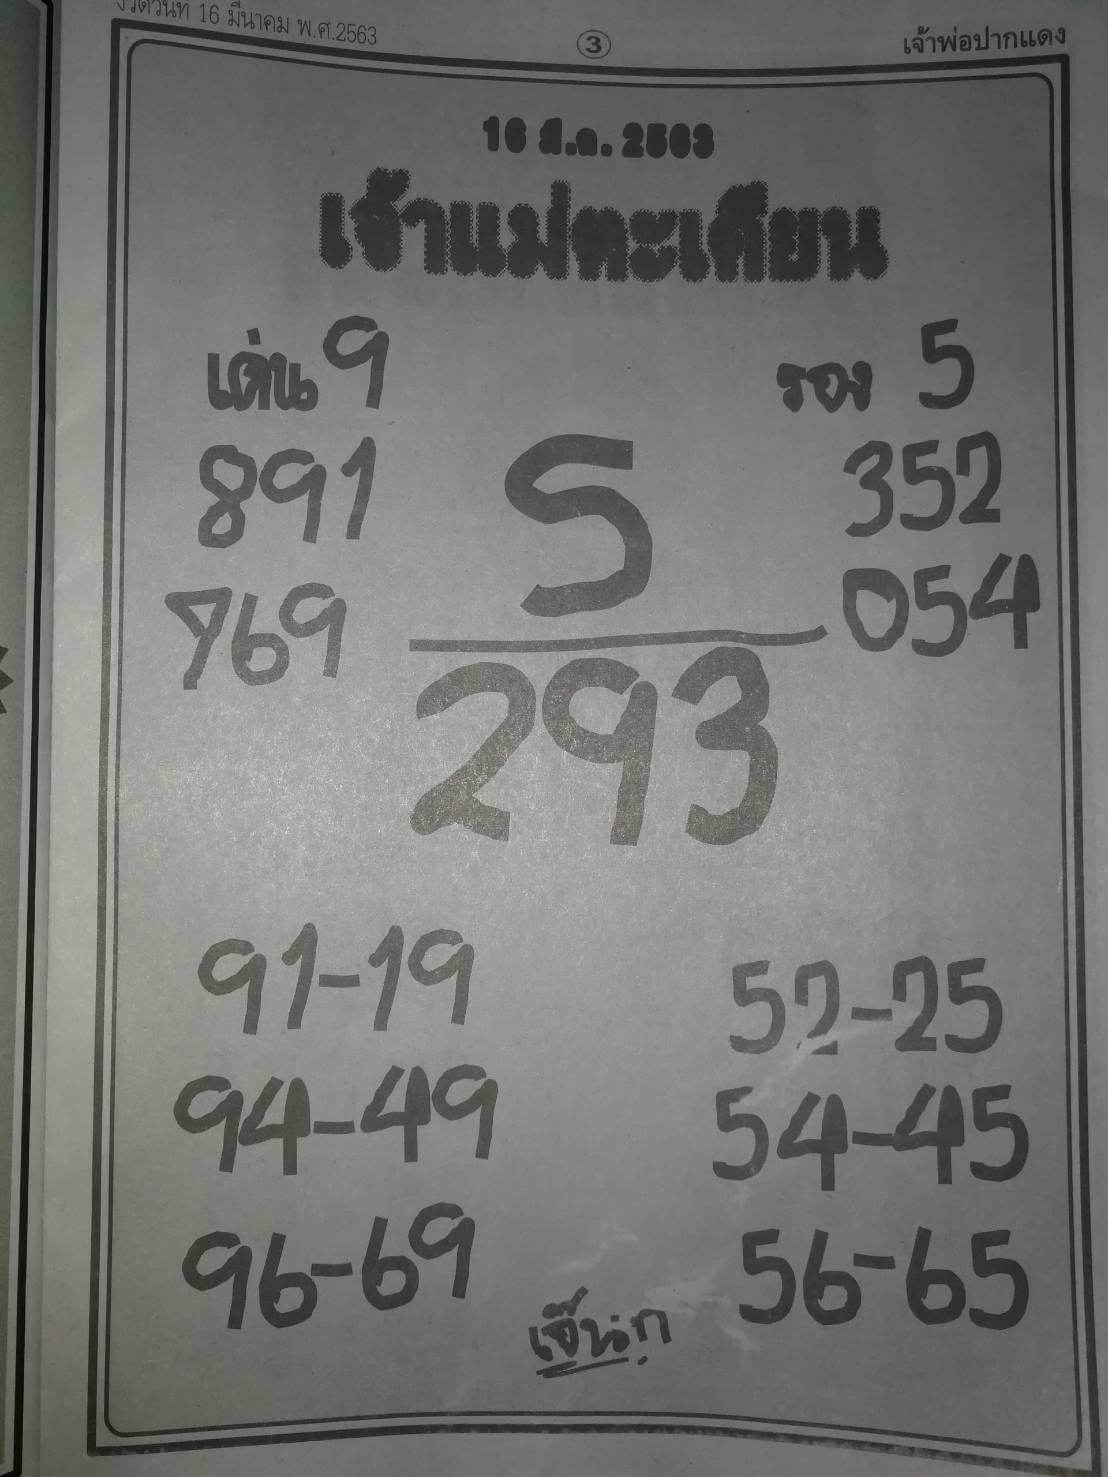 งวดวันที่ 16 มีนาคม พ.ศ.2563
3
เจ้าพ่อปากแดง
16 มี.ค. 2563
เจ้าแม่ตะเคียน
เด่น 9
รอง 5
891
352
5
769
054
293
91-19
52-25
94-49
54-45
96-69
56-65